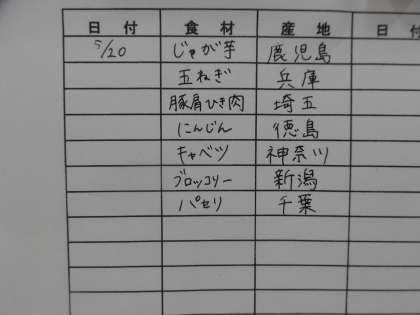 日付 食材 産地 日付
5/20 じゃが芋 鹿児島
玉ねぎ 兵庫
豚肩ひき肉 埼玉
にんじん 徳島
キャベツ 神奈川
ブロッコリー 新潟
パセリ 千葉